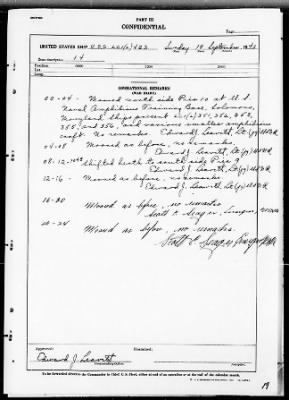 PART III
CONFIDENTIAL
UNITED STATES SHIP U.S.S. LCI(L) 423 Sunday 19 September, 1943
Zone description 14
0800 1200 2000
OPERATIONAL REMARKS
(WAR DIARY)
00-04 - Moored north side Pier 10 at U.S.
Naval Amphibious Training Base, Solomons,
Maryland. Ships present LCI(L) 351, 352,
355, and 356, and various smaller amphibious
craft. No remarks. Edward J. Leavitt, Lt(jg) USNR
04-08 - Moored as before, no remarks.
Edward J. Leavitt, Lt(jg) USNR
08-12 - Shifted berth to south side Pier 9
Edward J. Leavitt, Lt(jg) USNR
12-16 - Moored as before, no remarks
Edward J. Leavitt, Lt(jg) USNR
16-20
Moored as before, no remarks
Scott C. Ensign, USNR
20-24
Moored as before, no remarks.
Scott C. Ensign USNR
Approved:
Examined:
Edward J. Leavitt
To be forwarded direct to the Commander in Chief, U.S. Fleet, either at end of an operation or at the end of the calendar month.
19